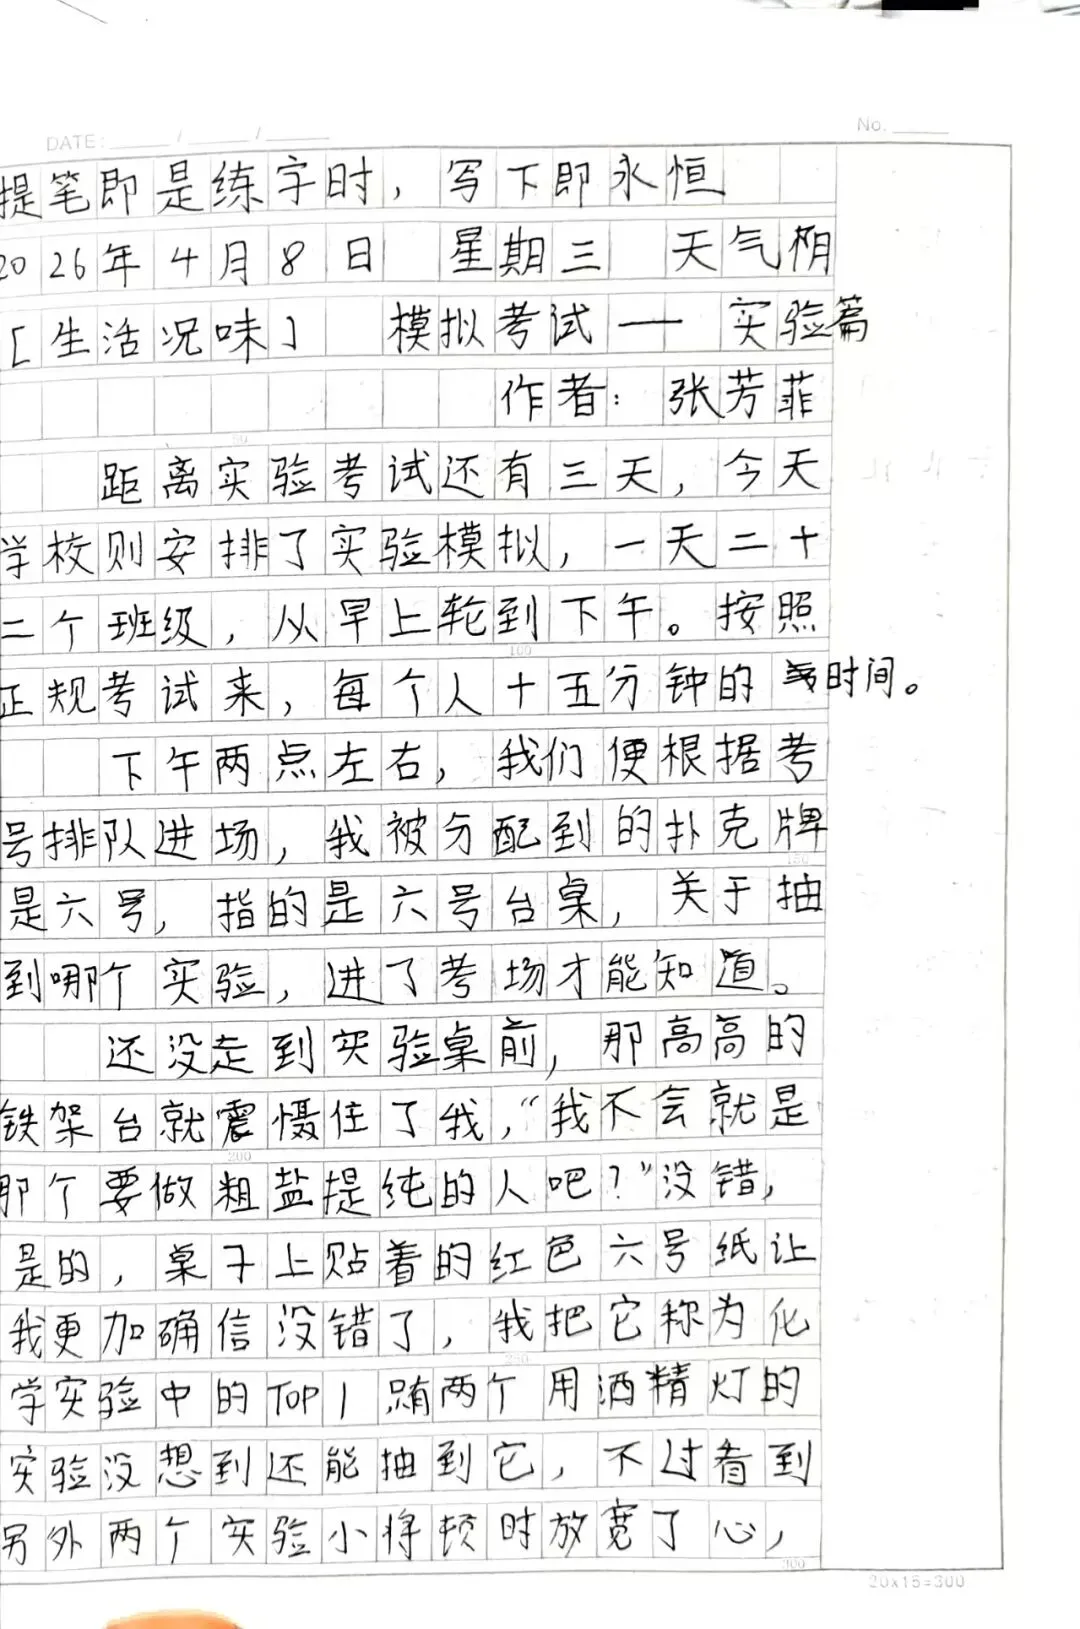 DATE: / /
No.
提笔即是练字时，写下即永恒
2026年4月8日 星期三 天气阴
［生活况味］ 模拟考试——实验篇
作者：张芳菲
距离实验考试还有三天，今天
学校则安排了实验模拟，一天二十
二个班级，从早上轮到下午。按照
正规考试来，每个人十五分钟的时间。
下午两点左右，我们便根据考
号排队进场，我被分配到的扑克牌
是六号，指的是六号台桌，关于抽
到哪个实验，进了考场才能知道。
还没走到实验桌前，那高高的
铁架台就震慑住了我，“我不会就是
那个要做粗盐提纯的人吧？”没错，
是的，桌子上贴着的红色六号纸让
我更加确信没错了，我把它称为化
学实验中的TOP1 两个用酒精灯的
实验没想到还能抽到它，不过看到
另外两个实验小将顿时放宽了心，
50
100
150
200
250
300
20x15=300